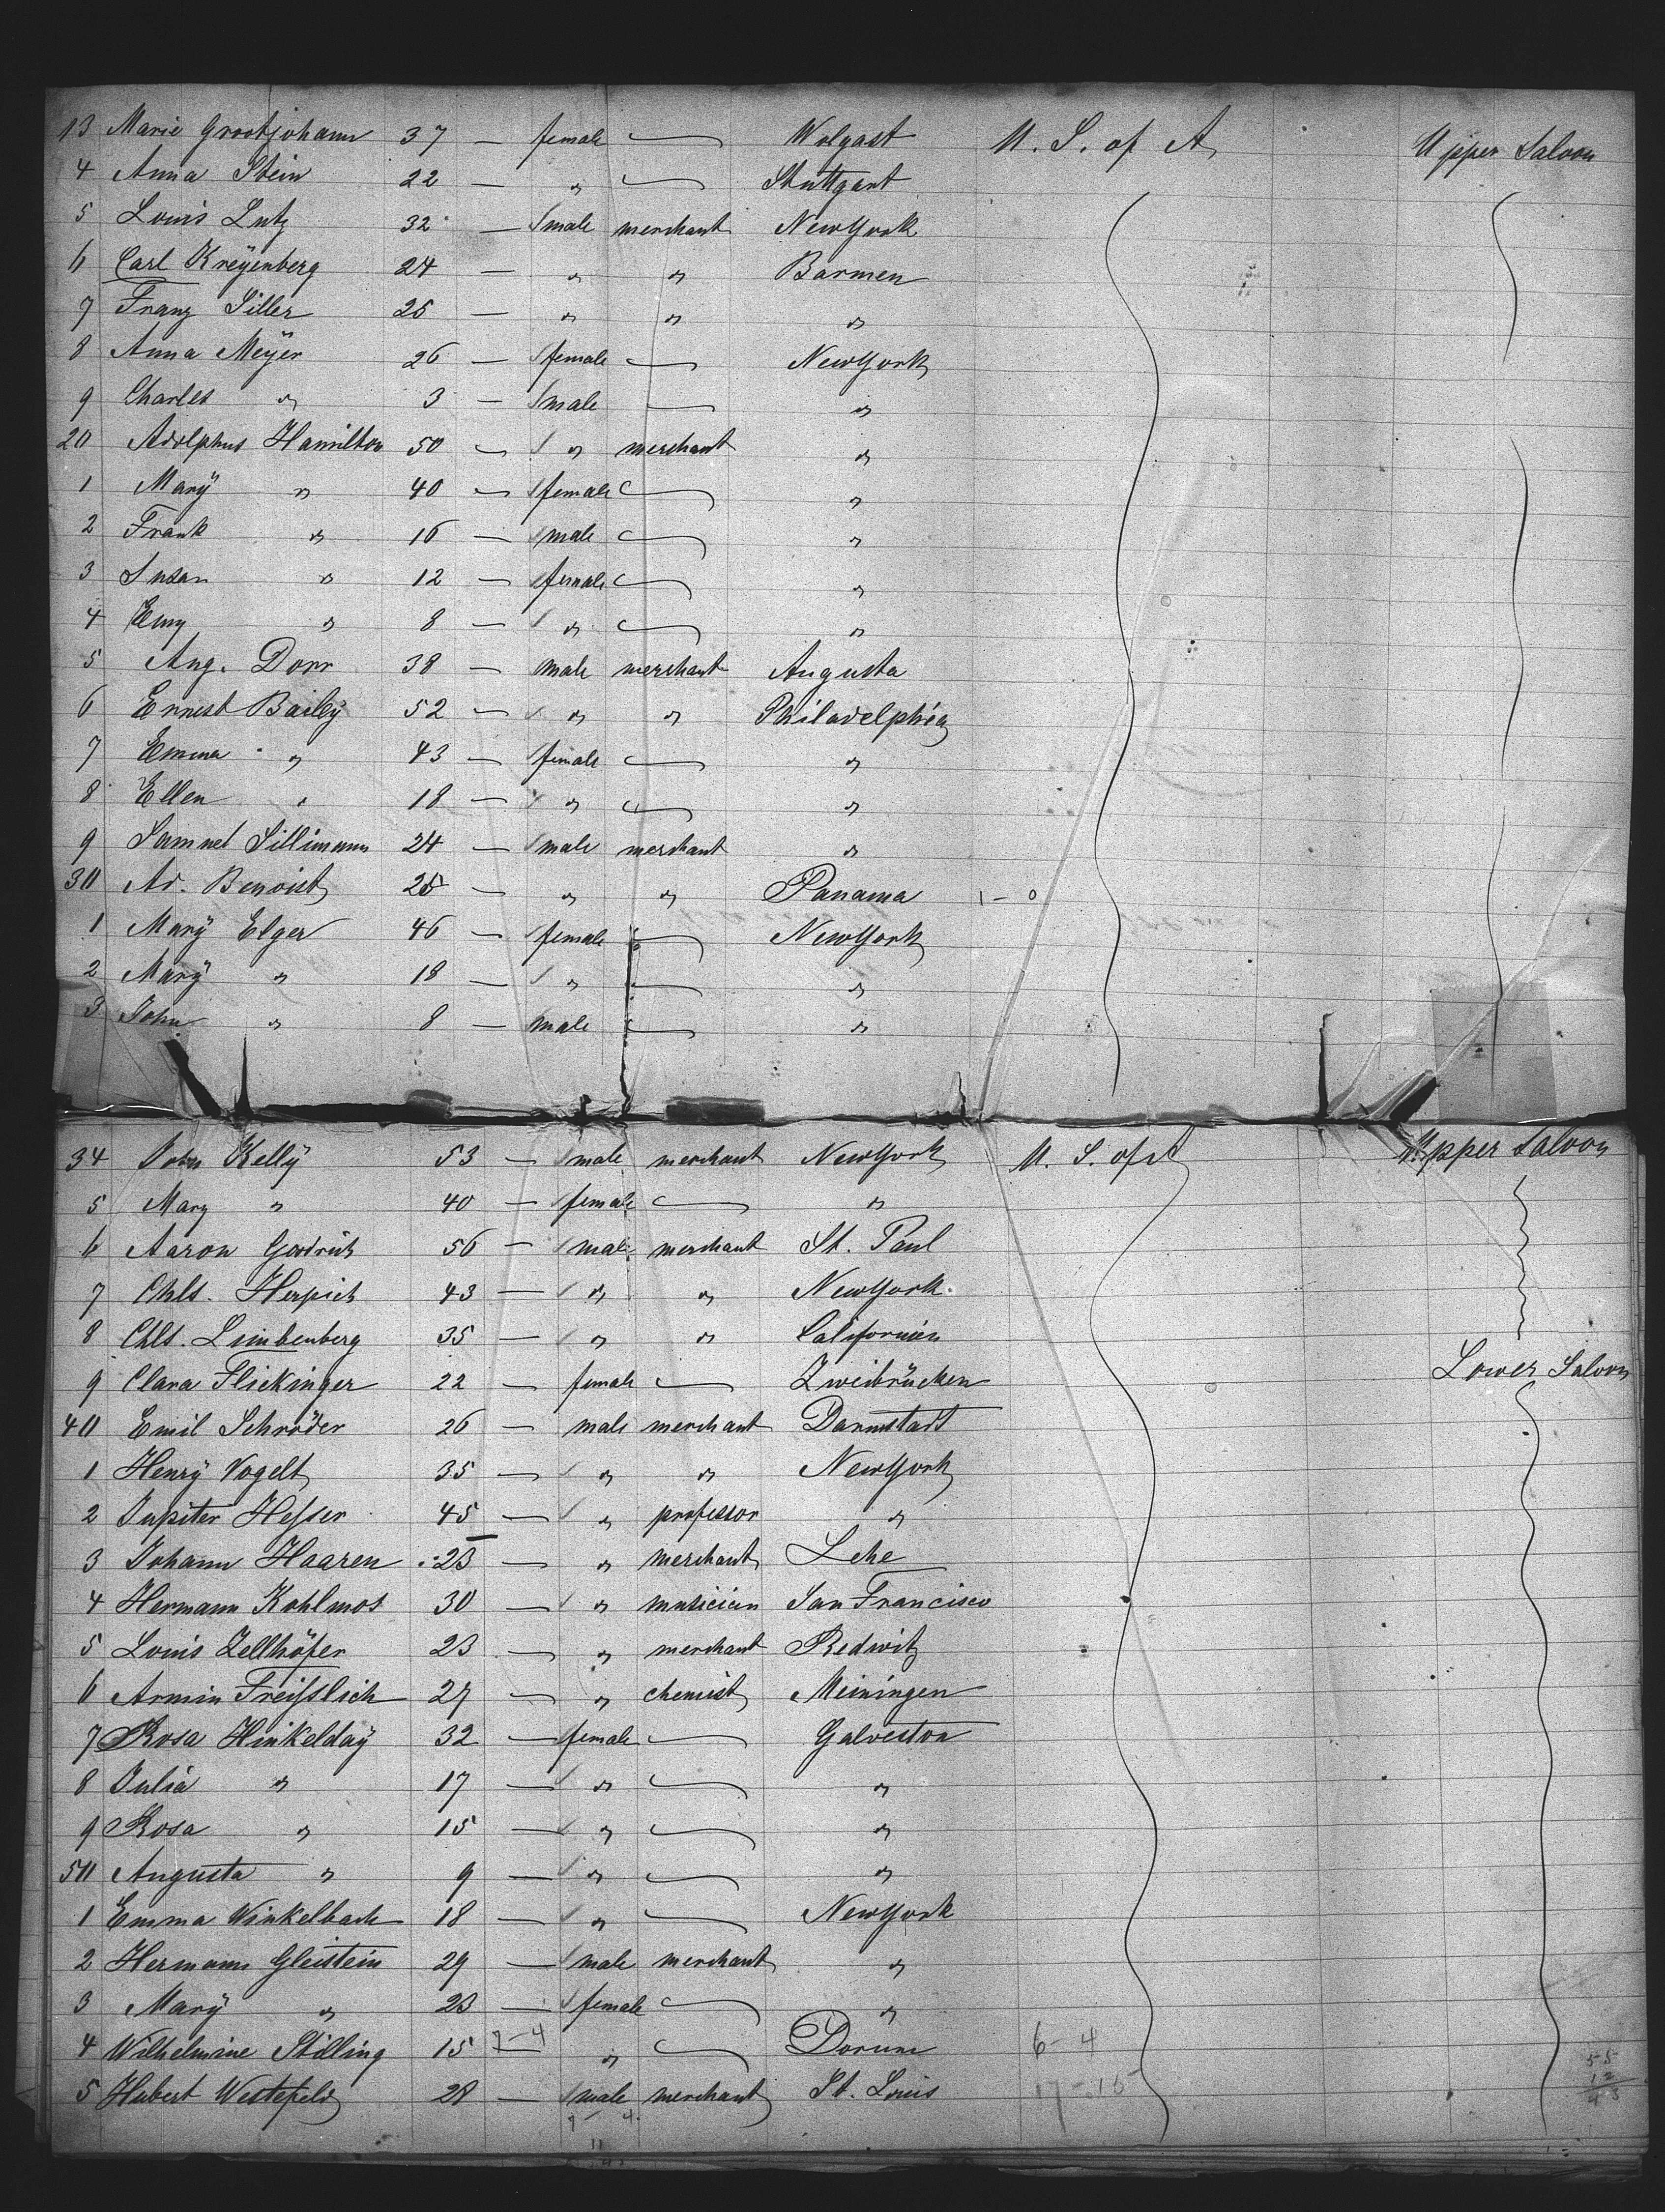 13 Marie Grootjohann 37 — female — Wolgast U. S. of A. Upper Saloon
4 Anna Stein 22 — " — Stuttgart
5 Louis Lutz 32 — male merchant New York
6 Carl Kreÿenberg 24 — " " Barmen
7 Franz Siller 25 — " " "
8 Anna Meÿer 26 — female — New York
9 Charles " 3 — male — "
20 Adolphus Hamilton 50 — " merchant "
1 Marÿ " 40 — female — "
2 Frank " 16 — male — "
3 Susan " 12 — female — "
4 Emy " 8 — " — "
5 Aug. Dorr 38 — male merchant Augusta
6 Ernest Baileÿ 52 — " " Philadelphia
7 Emma " 43 — female — "
8 Ellen " 18 — " — "
9 Samuel Sillimann 24 — male merchant "
30 Ad. Benoist 25 — " " Panama 1 – 0
1 Marÿ Elger 46 — female — New York
2 Marÿ " 18 — " — "
3 John " 8 — male — "
34 John Kellÿ 53 — male merchant New York U. S. of A Upper Saloon
5 Mary " 40 — female — "
6 Aaron Goodrich 56 — male merchant St. Paul
7 Chls. Herpich 43 — " " New York
8 Chls. Limbenberg 35 — " " Californien
9 Clara Flickinger 22 — female — Zweibrücken Lower Saloon
40 Emil Schröder 26 — male merchant Darmstadt
1 Henrÿ Vogelt 35 — " " New York
2 Jupiter Hesser 45 — " professor "
3 Johann Haaren 23 — " merchant Lehe
4 Hermann Kohlmos 30 — " musician San Francisco
5 Louis Zellhöfer 23 — " merchant Redwitz
6 Armin Freisslich 27 — " chemist Meiningen
7 Rosa Hinkeldaÿ 32 — female — Galveston
8 Julia " 17 — " — "
9 Rosa " 15 — " — "
50 Augusta " 9 — " — "
1 Emma Winkelbach 18 — " — New York
2 Hermann Gleistein 29 — male merchant "
3 Marÿ " 23 — female — "
4 Wilhelmine Stilling 15 7–4 " — Dorum 6–4
5 Hubert Westefeld 28 — male merchant St. Louis 17–15
55
12
43
7 4
11